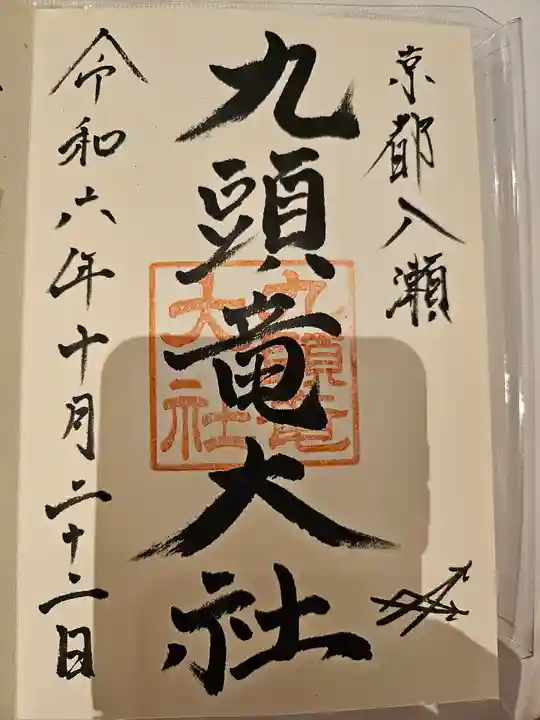 京都八瀬
九頭竜大社
九頭竜
大社
令和六年十月二十二日